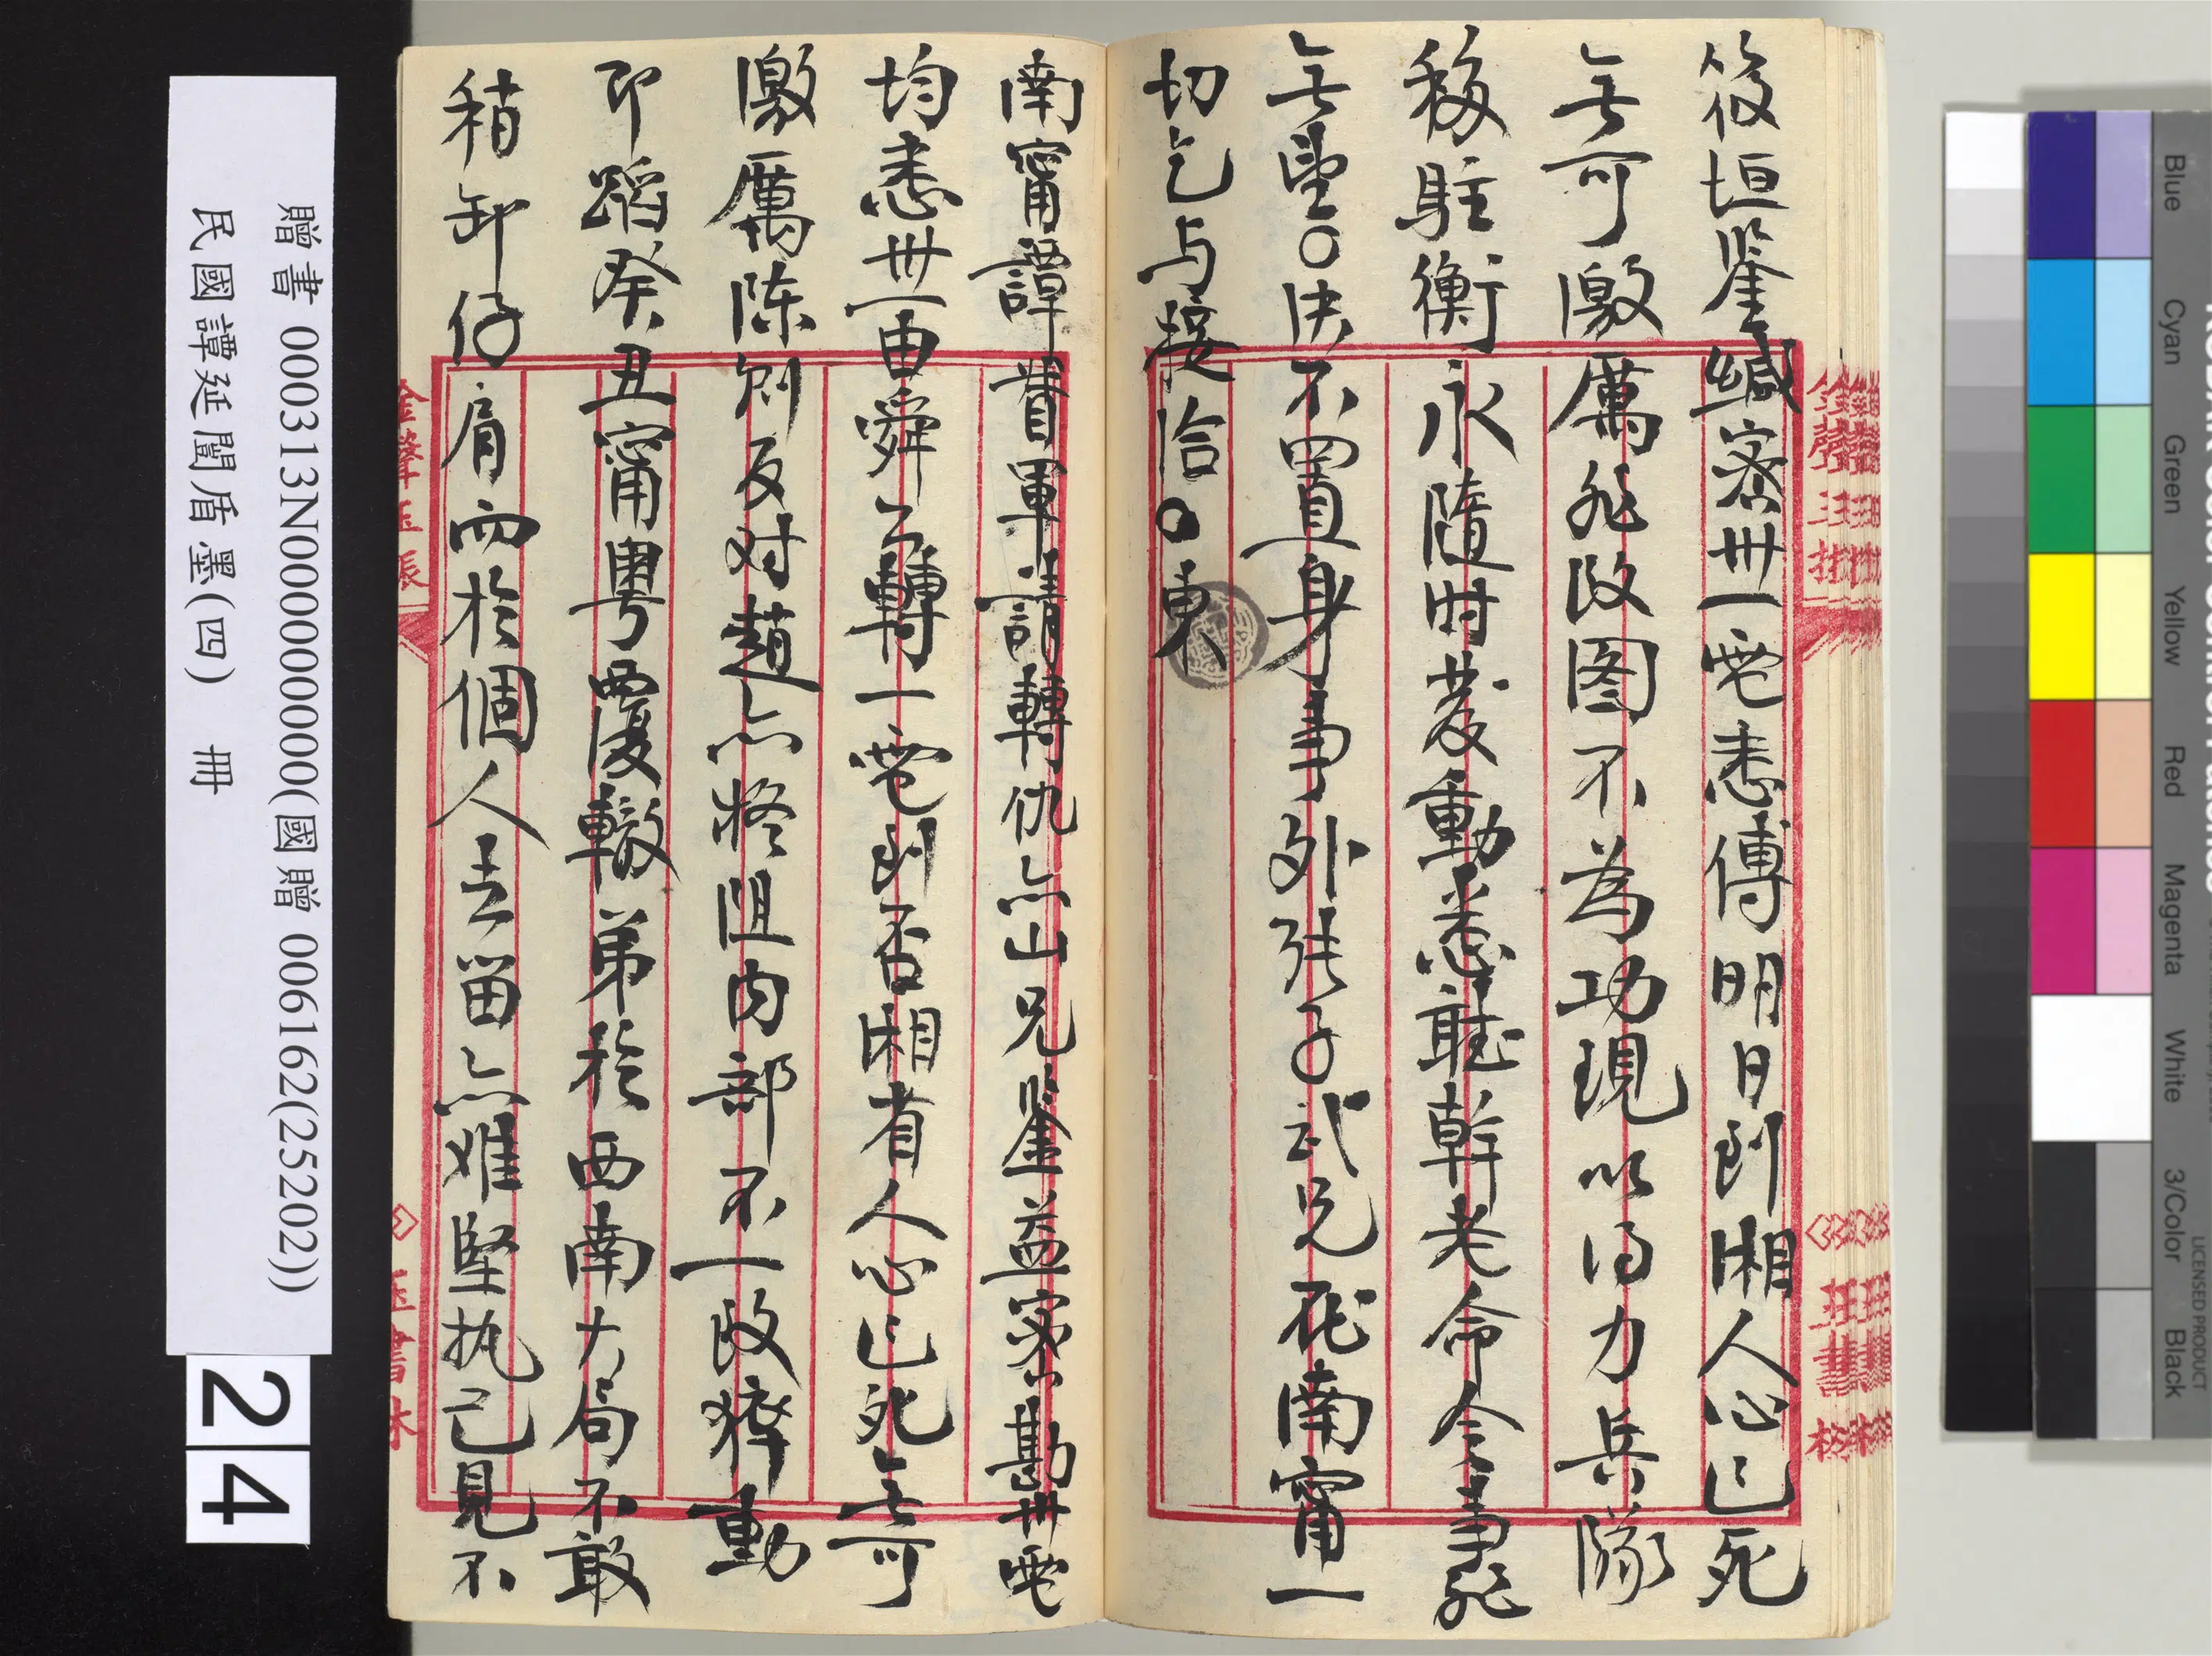 筱垣鉴緘密卅一電悉傅明日到湘人心已死
無可激厲非改图不為功現以得力兵隊
移駐衡永隨时發動悉聽幹老命令事雖
無望○決不置身事外張子武兄在南甯一
切乞与接洽○東
南甯譚督軍請轉仇亦山兄鉴益密勘卅電
均悉卅一由舜公轉一電到否湘省人心已死無可
激厲陈则反对趙亦格阻内部不一致猝動
即蹈癸丑甯粤覆轍弟於西南大局不敢
稍卸仔肩而於個人去留亦难堅执己見不
贈書 000313N000000000000(國贈 006162(25202))
民國譚延闓盾墨(四) 冊
24
Blue
Cyan
Green
Yellow
Red
Magenta
White
3/Color
Black
LICENSED PRODUCT